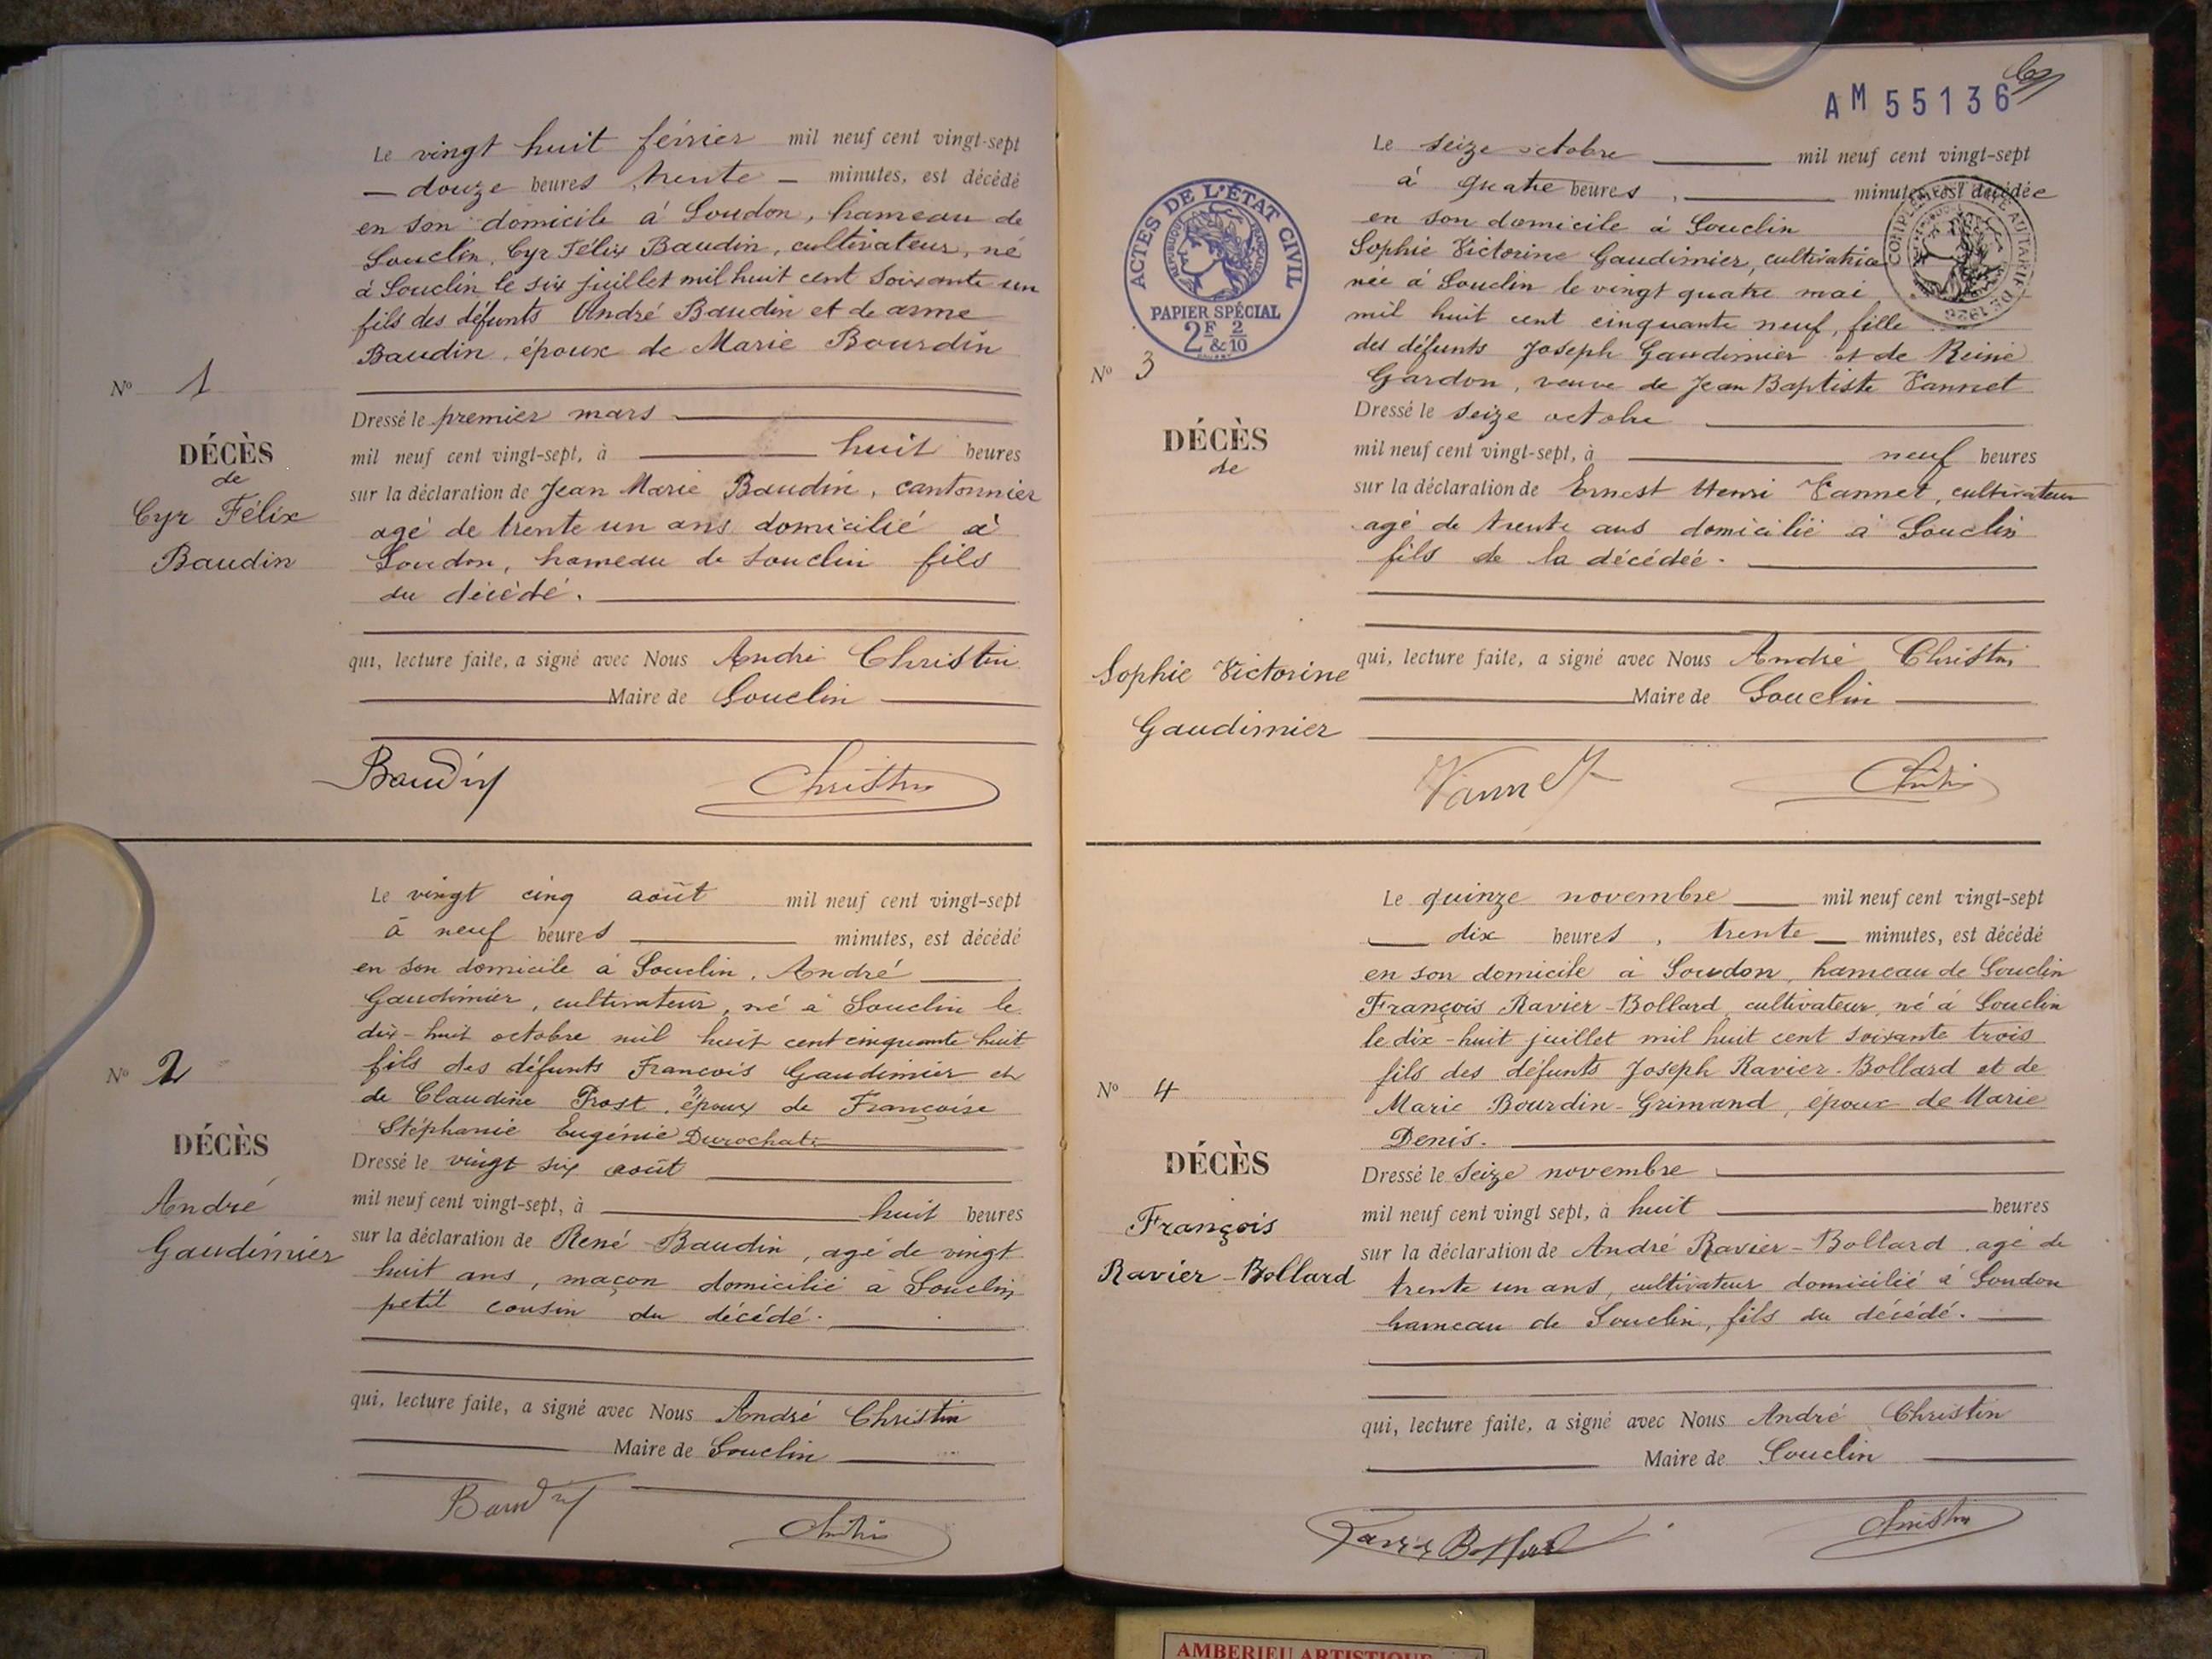 Le vingt huit février mil neuf cent vingt-sept
— douze heures, trente — minutes, est décédé
en son domicile à Soudon, hameau de
Souclin, Cyr Félix Baudin, cultivateur, né
à Souclin le six juillet mil huit cent soixante un
fils des défunts André Baudin et de arme
Baudin, époux de Marie Bourdin
No 1
DÉCÈS
de
Cyr Félix
Baudin
Dressé le premier mars
mil neuf cent vingt-sept, à huit heures
sur la déclaration de Jean Marie Baudin, cantonnier
agé de trente un ans domicilié à
Soudon, hameau de Souclin fils
du décédé.
qui, lecture faite, a signé avec Nous André Christin
Maire de Souclin
Baudin Christin
Le vingt cinq août mil neuf cent vingt-sept
à neuf heures minutes, est décédé
en son domicile à Souclin, André
Gaudimier, cultivateur, né à Souclin le
dix-huit octobre mil huit cent cinquante huit
fils des défunts Francois Gaudimier et
de Claudine Prost, époux de Françoise
Stéphanie Eugénie Durochat
No 2
DÉCÈS
André
Gaudimier
Dressé le vingt six août
mil neuf cent vingt-sept, à huit heures
sur la déclaration de René Baudin, agé de vingt
huit ans, maçon domicilié à Souclin
petit cousin du décédé.
qui, lecture faite, a signé avec Nous André Christin
Maire de Souclin
Baudin Christin
AM 55136
Le seize octobre mil neuf cent vingt-sept
à quatre heures, minutes, est décédée
en son domicile à Souclin
Sophie Victorine Gaudimier, cultivatrice
née à Souclin le vingt quatre mai
mil huit cent cinquante neuf, fille
des défunts Joseph Gaudimier et de Reine
Gardon, veuve de Jean Baptiste Vannet
ACTES DE L'ÉTAT CIVIL
RÉPUBLIQUE FRANÇAISE
PAPIER SPÉCIAL
2F & 2/10
COMPLÉMENT AU TARIF DE 1926
No 3
DÉCÈS
de
Sophie Victorine
Gaudimier
Dressé le seize octobre
mil neuf cent vingt-sept, à neuf heures
sur la déclaration de Ernest Henri Vannet, cultivateur
agé de trente ans domicilié à Souclin
fils de la décédée.
qui, lecture faite, a signé avec Nous André Christin
Maire de Souclin
Vannet Christin
Le quinze novembre mil neuf cent vingt-sept
— dix heures, trente — minutes, est décédé
en son domicile à Soudon, hameau de Souclin
François Ravier-Bollard, cultivateur, né à Souclin
le dix-huit juillet mil huit cent soixante trois
fils des défunts Joseph Ravier-Bollard et de
Marie Bourdin-Grimand, époux de Marie
Denis.
No 4
DÉCÈS
François
Ravier-Bollard
Dressé le seize novembre
mil neuf cent vingt sept, à huit heures
sur la déclaration de André Ravier-Bollard agé de
trente un ans, cultivateur domicilié à Soudon
hameau de Souclin, fils du décédé.
qui, lecture faite, a signé avec Nous André Christin
Maire de Souclin
Ravier Bollard Christin
AMBERIEU ARTISTIQUE